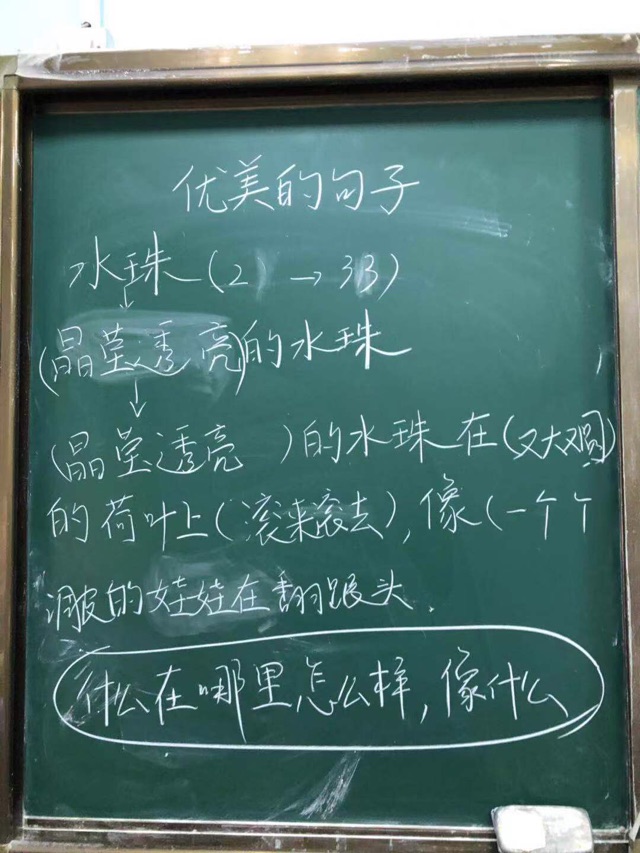 优美的句子
水珠(2 → 33)
↓
(晶莹透亮)的水珠
↓
(晶莹透亮 )的水珠在(又大又圆)
的荷叶上(滚来滚去),像(一个个
调皮的娃娃在翻跟头.
什么在哪里怎么样,像什么